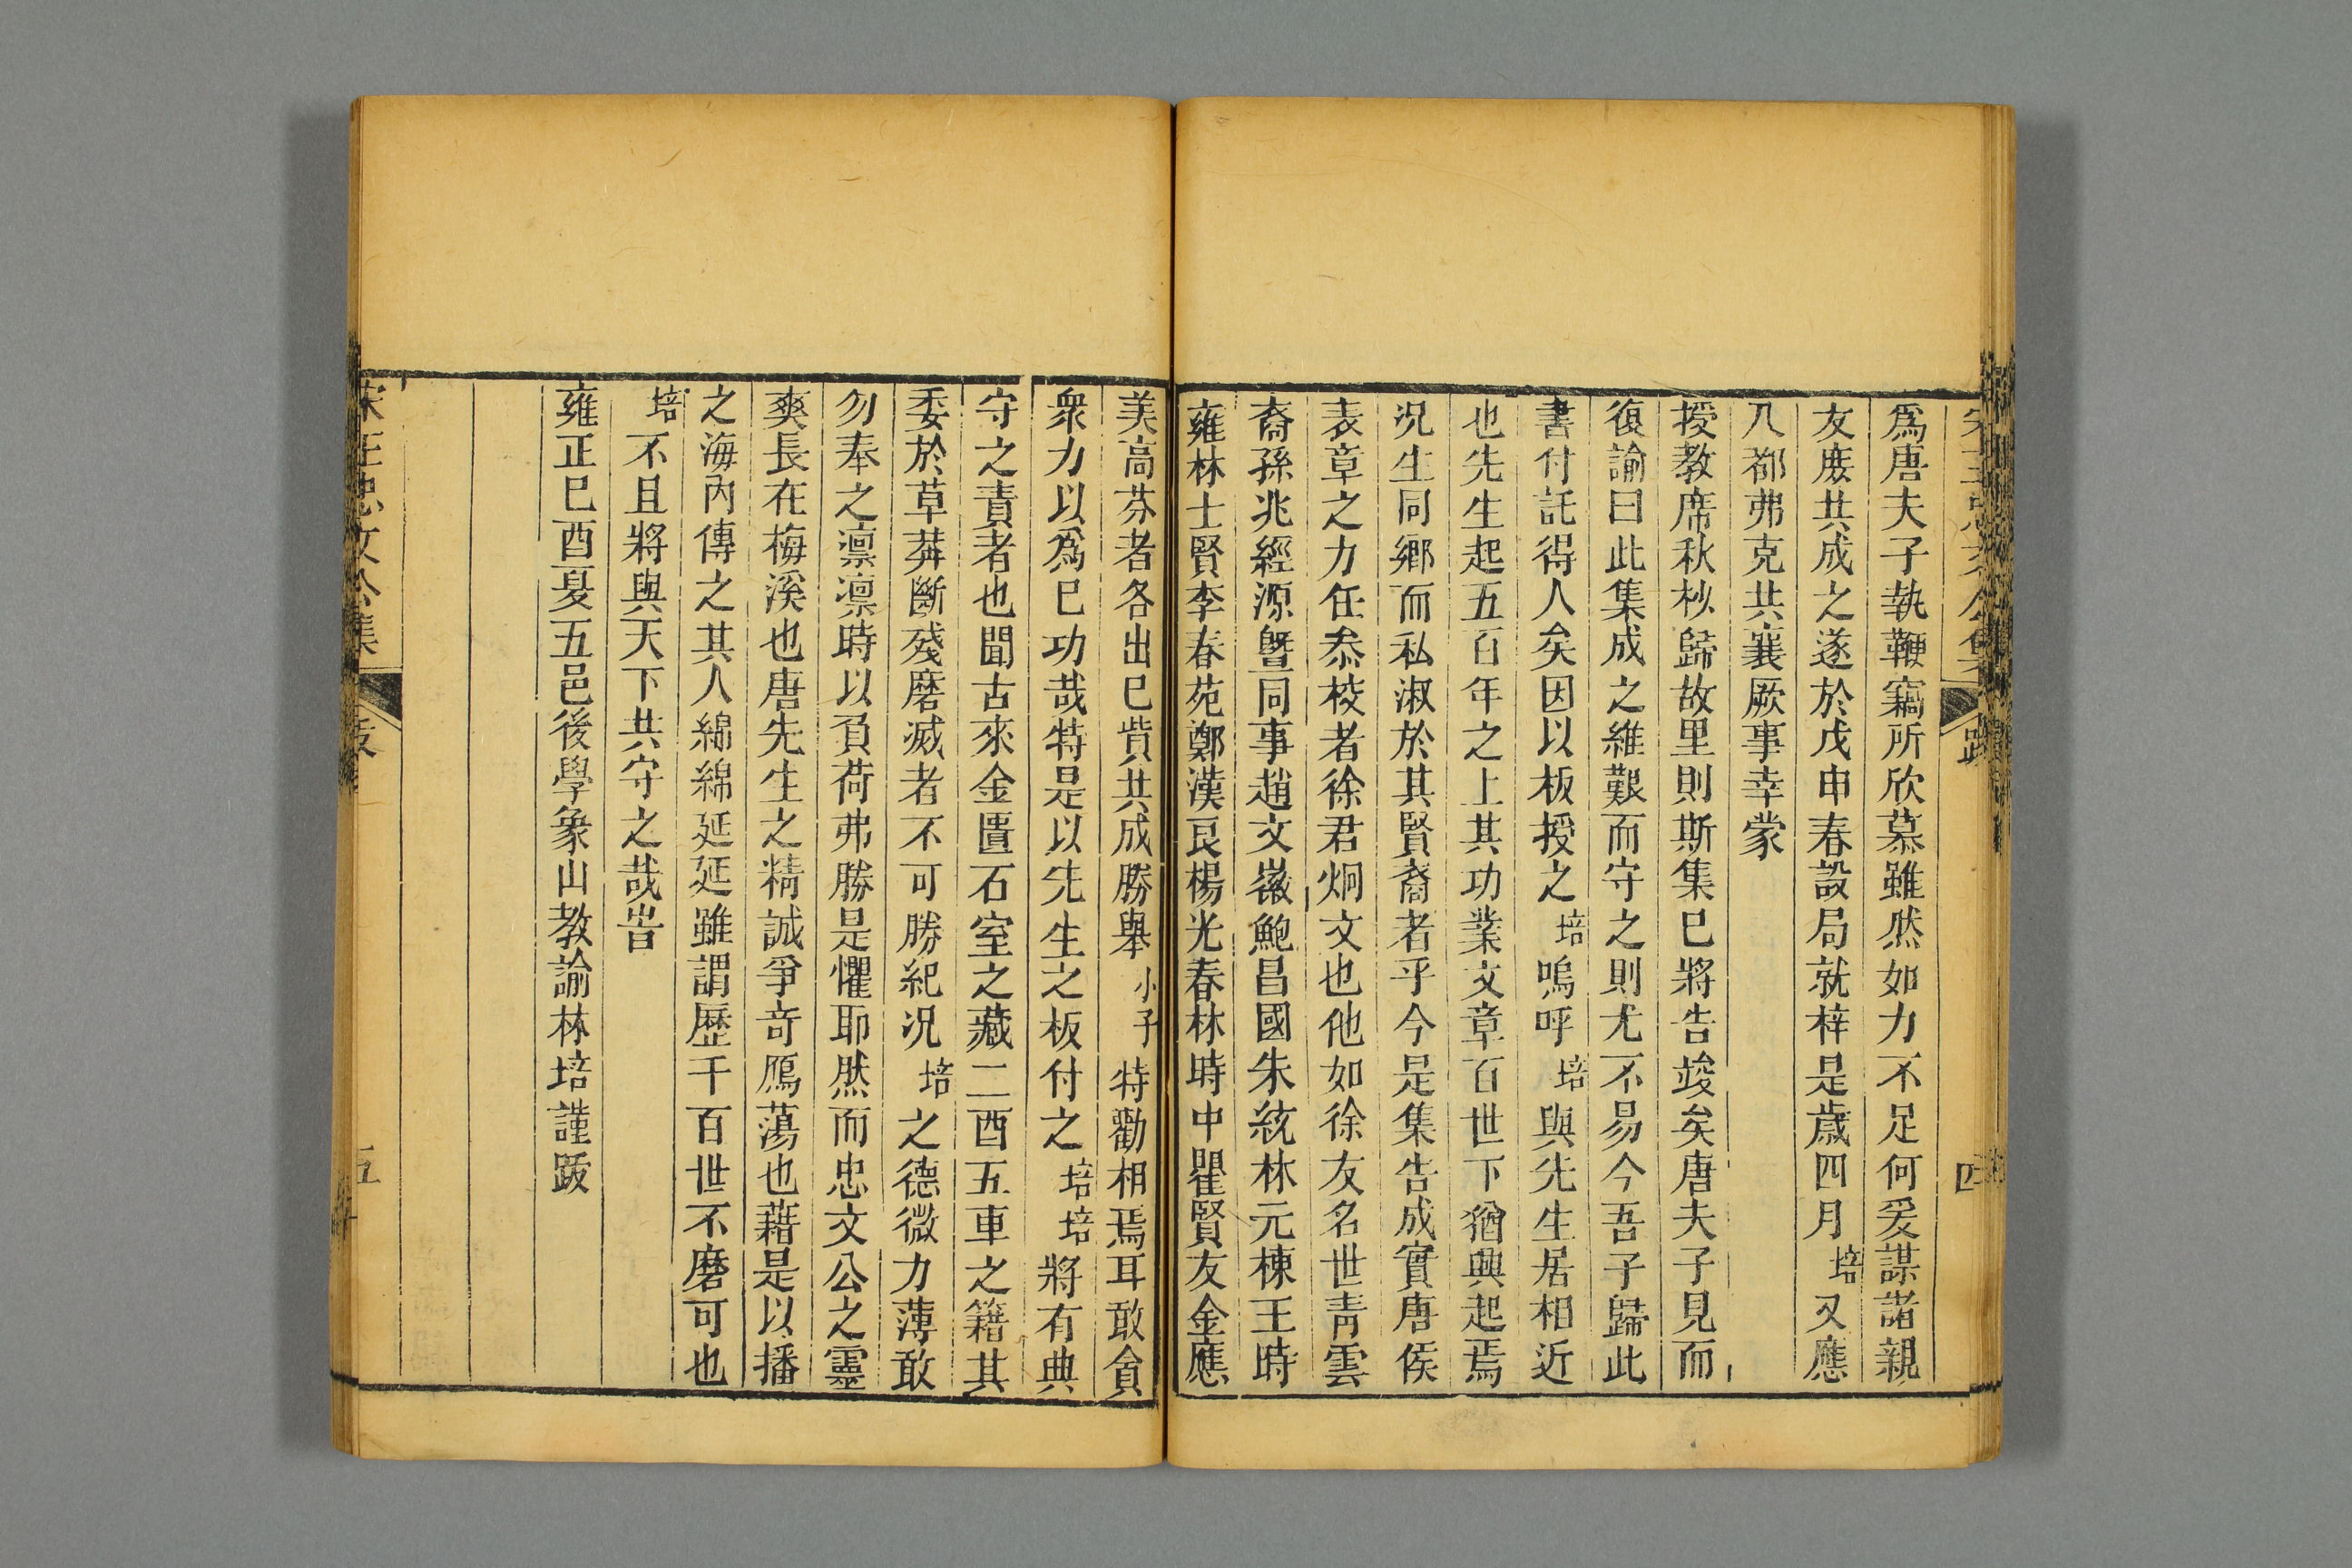 爲唐夫子執鞭竊所欣慕雖然如力不足何爰謀諸親
友庶共成之遂於戊申春設局就梓是歲四月培又應
八都弗克共襄厥事幸蒙
授教席秋杪歸故里則斯集已將告竣矣唐夫子見而
復諭曰此集成之維艱而守之則尤不易今吾子歸此
書付託得人矣因以板授之培嗚呼培與先生居相近
也先生起五百年之上其功業文章百世下猶興起焉
況生同鄉而私淑於其賢裔者乎今是集告成實唐侯
表章之力任叅校者徐君炯文也他如徐友名世靑雲
裔孫兆經源曁同事趙文嶶鮑昌國朱統林元棟王時
雍林士賢李春苑鄭漢良楊光春林時中瞿賢友金應
美高芬者各出已貲共成勝舉小子特勸相焉耳敢貪
衆力以爲已功哉特是以先生之板付之培培將有典
守之責者也聞古來金匱石室之藏二酉五車之籍其
委於草莾斷殘磨滅者不可勝紀况培之德微力薄敢
勿奉之凛凛時以負荷弗勝是懼耶然而忠文公之靈
爽長在梅溪也唐先生之精誠爭奇鴈蕩也藉是以播
之海內傳之其人綿綿延延雖謂歷千百世不磨可也
培不且將與天下共守之哉旹
雍正已酉夏五邑後學象山教諭林培謹跋
宋王忠文公集
跋
五